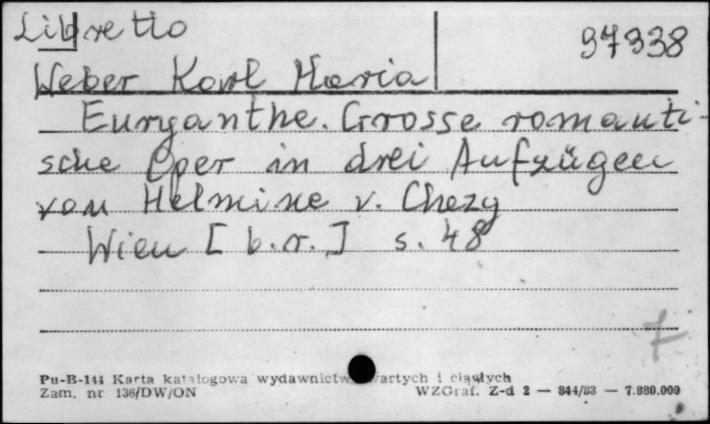 Libretto
97938
Weber Karl Maria
Euryanthe. Grosse romanti-
sche Oper in drei Aufzügen
von Helmine v. Chezy
Wien [b.r.] s. 48
7
Pu-B-144 Karta katalogowa wydawnictw zwartych i ciągłych
Zam. nr 136/DW/ON WZGraf. Z-d 2 — 844/83 — 7.880.000